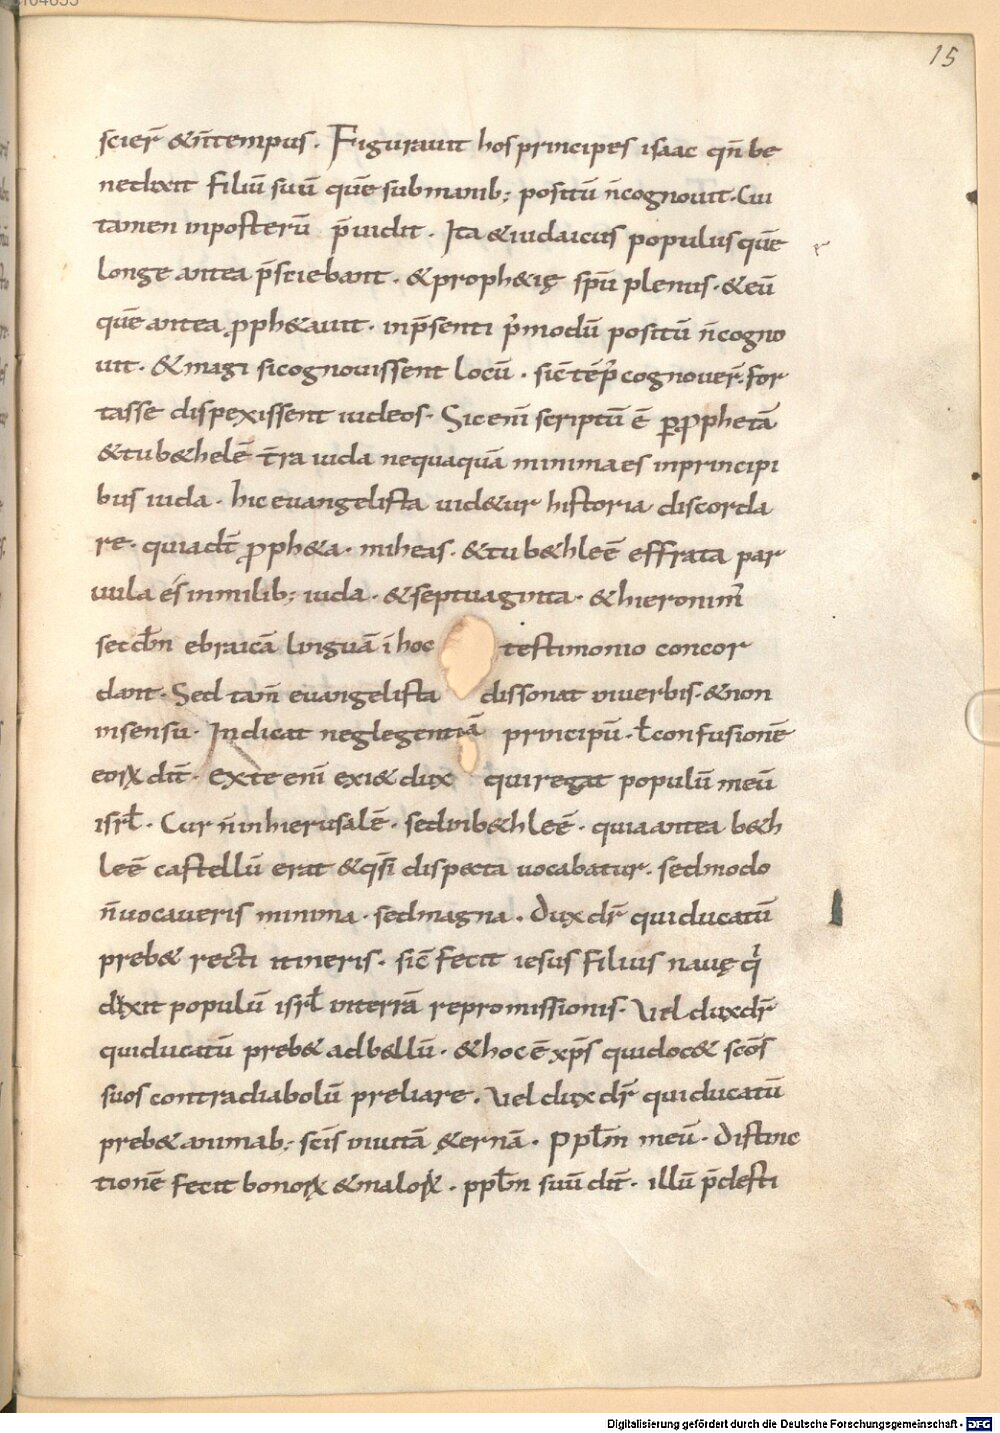 15
scier̄ &n̄tempus. Figurauit hos principes isaac qn̄ be
nedixit filiū suū quē sub manib; positū n̄cognouit. Cui
tamen inposterū p̄uidit. Ita & iudaicus populus quē
longe antea p̄sciebant. & proph&ię sp̄u plenus. & eū
quē antea ꝓph&auit. inp̄senti p̄modū positū n̄cogno
uit. & magi sicognouissent locū. sic̄ cognouer̄. for
tasse dispexissent iudeos. Sic eni scriptū ē ꝑ ꝓphetā
& tu b&helē t̄ra iuda nequaquā minima es inprincipi
bus iuda. hic euangelista uid&ur historia discorda
re. quia dt̄ ꝓph&a. miheas. & tu b&hleē effrata par
uula es inmilib; iuda. & septuaginta. & hieronim̄
secd̄m ebraicā linguā ī hoc testimonio concor
dant. Sed tam̄ euangelista dissonat inuerbis. & non
insensu. Indicat neglegentiā principū. ł confusionē
eoꝝ dt̄. exte eni exi& dux qui regat populū meū
isrł. Cur n̄ inhierusalē. sed inb&hleē. quia antea b&h
leē castellū erat & qsī dispecta uocabatur. sed modo
n̄ uocaueris minima. sed magna. dux dr̄ qui ducatū
preb& recti itineris. sic̄ fecit iesus filius nauę q
dixit populū isrł interrā repromissionis. Vel dux dr̄
qui ducatū preb& ad bellū. & hoc ē xp̄s qui doc& sc̄os
suos contra diabolū preliare. Vel dux dr̄ qui ducatū
preb& animab; sc̄is inuitā &ernā. Ppłm meū. distinc
tionē fecit bonoꝝ & maloꝝ. ppłm suū dt̄. illū p̄desti
Digitalisierung gefördert durch die Deutsche Forschungsgemeinschaft - DFG